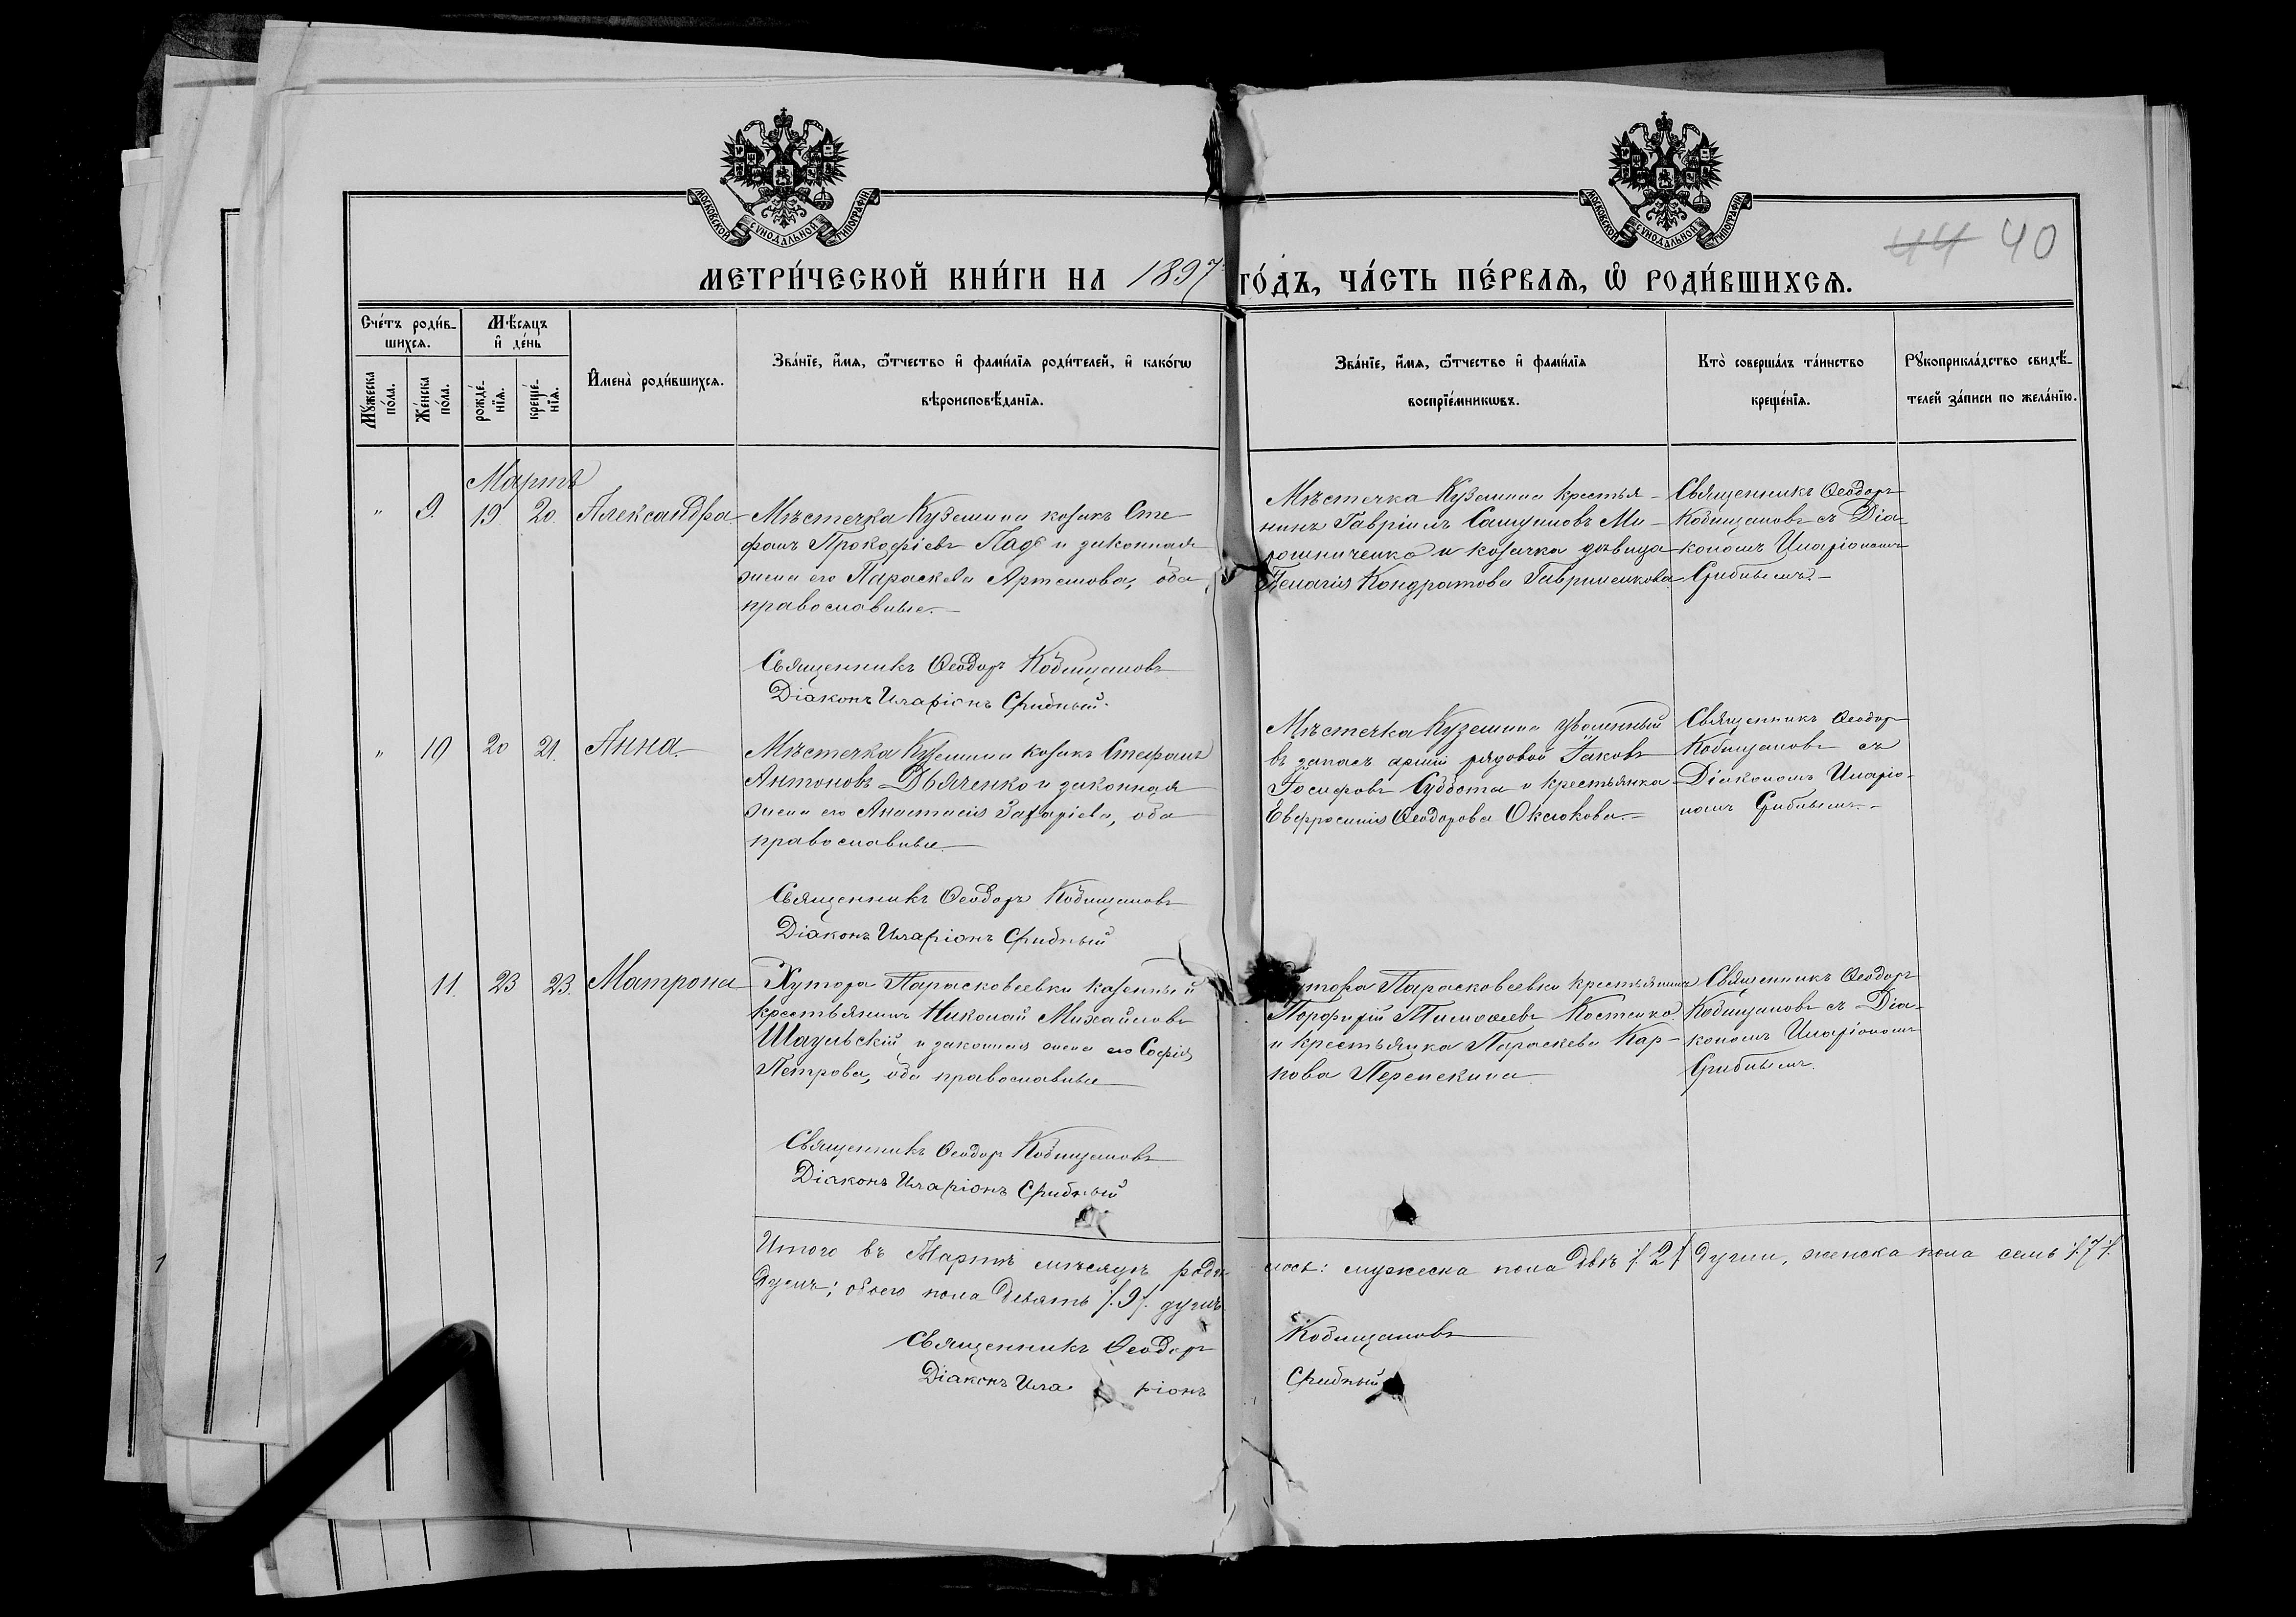 МОСКОВСКОЙ СѴНОДАЛЬНОЙ ТИПОГРАФІИ
МОСКОВСКОЙ СѴНОДАЛЬНОЙ ТИПОГРАФІИ
44 40
МЕТРИ́ЧЕСКОЙ КНИ́ГИ НА 1897 ГО́ДЪ, ЧА́СТЬ ПЕ́РВАѦ, Ѡ҆ РОДИ́ВШИХСѦ.
Сче́тъ роди́в-
шихсѧ.
Мꙋ́жеска по́ла.
Же́нска по́ла.
Мѣ́сѧцъ
и҆ де́нь
рожде́-
нїѧ.
креще́-
нїѧ.
И҆мена̀ роди́вшихсѧ.
Зва́нїе, и҆́мѧ, ѻ҆́тчество и҆ фами́лїѧ роди́телей, и҆ како́гѡ
вѣроисповѣ́данїѧ.
Зва́нїе, и҆́мѧ, ѻ҆́тчество и҆ фами́лїѧ
воспрїе́мникѡвъ.
Кто̀ соверша́лъ та́инство
креще́нїѧ.
Рꙋкоприкла́дство свидѣ́-
телей за́писи по жела́нїю.
Мартъ
" 9. 19 20. Александра
Мѣстечка Куземина козакъ Сте-
фанъ Прокофіевъ Падс и законная
жена его Параскева Артемова, оба
православные.—
Священникъ Ѳеодоръ Кобищановъ
Діаконъ Иларіонъ Срибный.
Мѣстечка Куземина крестья-
нинъ Гавріилъ Самуиловъ Ми-
рошниченко и козачка дѣвица
Пелагія Кондратова Гавриленкова
Священникъ Ѳеодоръ
Кобищановъ съ Діа-
кономъ Иларіономъ
Срибнымъ.—
" 10 20 21. Анна.
Мѣстечка Куземина козакъ Стефанъ
Антоновъ Дьяченко и законная
жена его Анастасія Захаріева, оба
православные
Священникъ Ѳеодоръ Кобищановъ
Діаконъ Иларіонъ Срибный
Мѣстечка Куземина уволенный
въ запасъ арміи рядовой Іаковъ
Іосифовъ Суббота и крестьянка
Евфросинія Ѳеодорова Оксюкова.—
Священникъ Ѳеодоръ
Кобищановъ съ
Діакономъ Иларіо-
номъ Срибнымъ.—
11. 23 23. Матрона
Хутора Парасковеевки казенный
крестьянинъ Николай Михайловъ
и законная жена его Софія
Петрова, оба православные
Священникъ Ѳеодоръ Кобищановъ
Діаконъ Иларіонъ Срибный
Хутора Парасковеевки крестьянинъ
Порфирій Тимоѳеевъ Костенко
и крестьянка Параскева Кар-
пова Перепекина
Священникъ Ѳеодоръ
Кобищановъ съ Діа-
кономъ Иларіономъ
Срибнымъ.
Итого въ Мартѣ мѣсяцѣ родилось: мужеска пола двѣ /.2./ души, женска пола семь /.7./.
душъ; обоего пола девять /.9/. душъ.
Священникъ Ѳеодоръ Кобищановъ
Діаконъ Иларіонъ Срибный